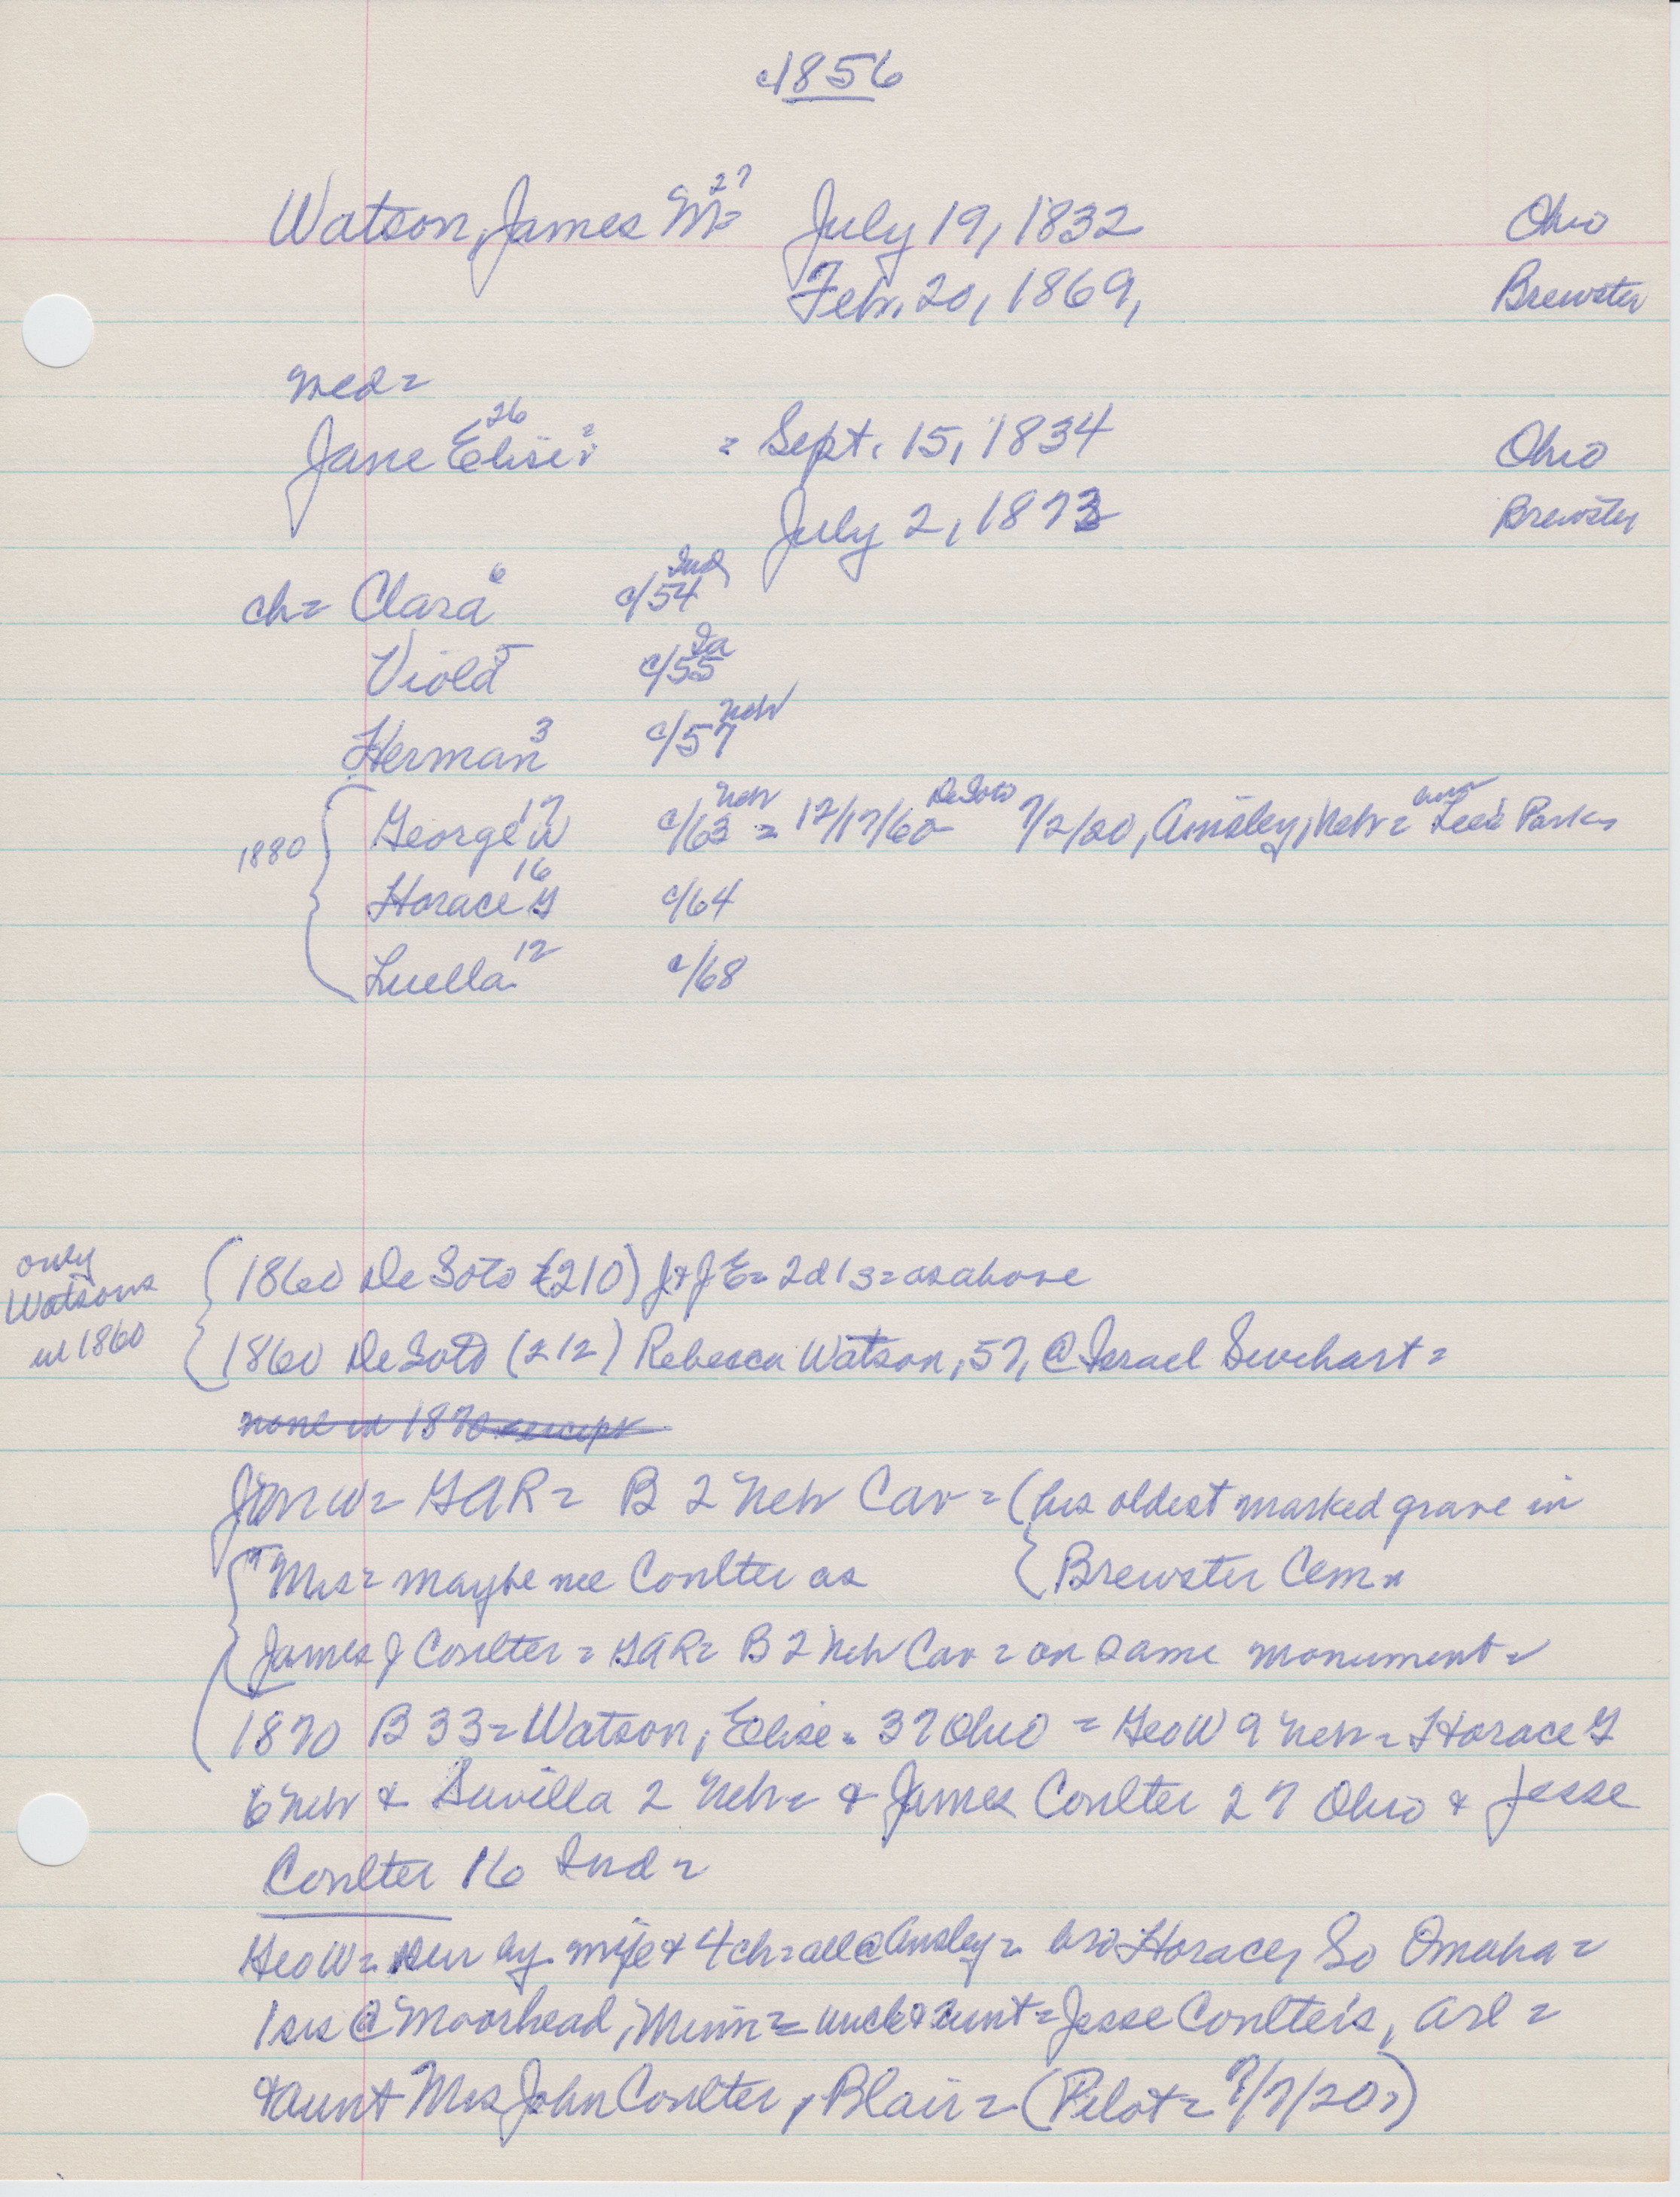 c/1856
Watson, James M= 27 July 19, 1832 Ohio
Feb. 20, 1869, Brewster
med=
Jane Elise= 26 = Sept. 15, 1834 Ohio
July 2, 1873 Brewster
ch= Clara 6 c/54 Ind
Viola 5 c/55 Ia
Herman 3 c/57 Neb
1880
George W 17 c/63 Neb = 12/17/60 De Soto 7/2/20, Ansley, Neb=
Horace G 16 c/64
Luella 12 c/68
only Watsons in 1860
1860 De Soto (210) J & J E= 2d 1s= as above
1860 De Soto (212) Rebecca Watson, 57, @ Israel Swihart=
none in 1870 except
Jas W= GAR= B 2 Neb Cav= (his oldest marked grave in
Mrs= maybe nee Coulter as Brewster Cem=
James J Coulter= GAR= B 2 Neb Cav= on same monument=
1870 B 33= Watson, Elise= 37 Ohio = Geo W 9 Neb= Horace G
6 Neb & Suvilla 2 Neb= & James Coulter 27 Ohio & Jesse
Coulter 16 Ind=
Geo W= sur by wife & 4 ch= all @ Ansley= bro Horace, So Omaha=
1 sis @ Moorhead, Minn= uncle & aunt= Jesse Coulter's, Arl=
& aunt Mrs John Coulter, Blair= (Pilot= 7/7/20=)